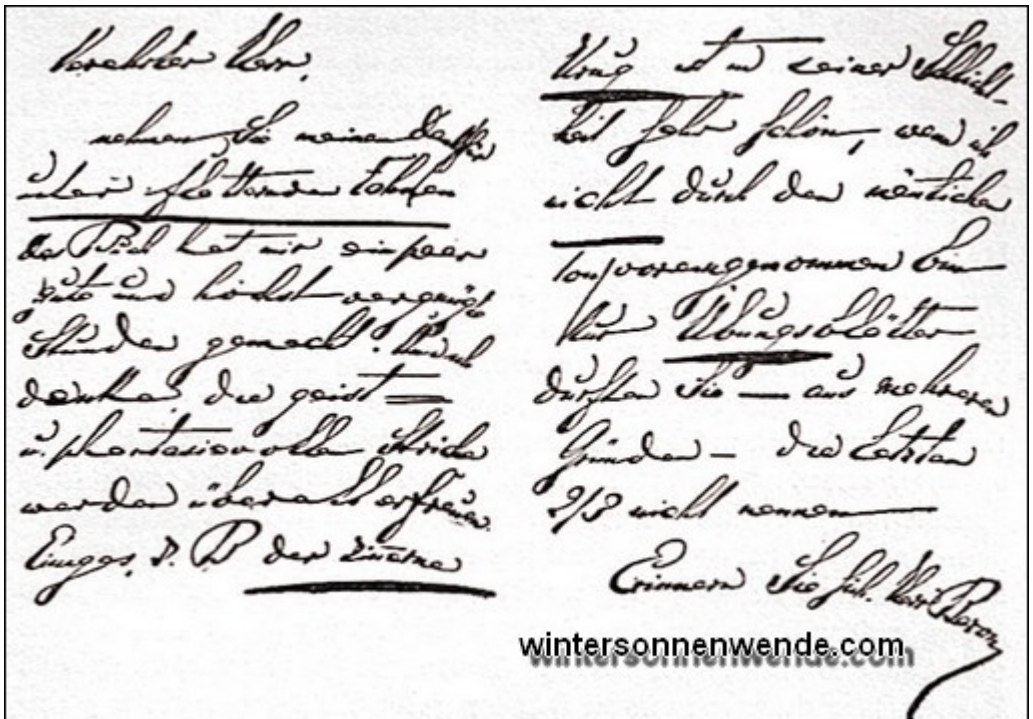 Verehrter Herr,
nehmen Sie meinen Dank für
unter flatternden Fahnen
das Buch hat mir ein paar
gute und höchst vergnügte
Stunden gemacht. Und ich
denke, die geist=
u. phantasievollen Striche
werden überall erfreuen.
Einiges, z. B. der zinnerne
Krug ist in seiner Schlicht-
heit sehr schön, wenn ich
nicht durch den nämlichen
voreingenommen bin
Nur Übungsblätter
durften Sie — aus mehreren
Gründen — die letzten
2/3 nicht nennen
Erinnern Sie sich, Herr Baron
wintersonnenwende.com